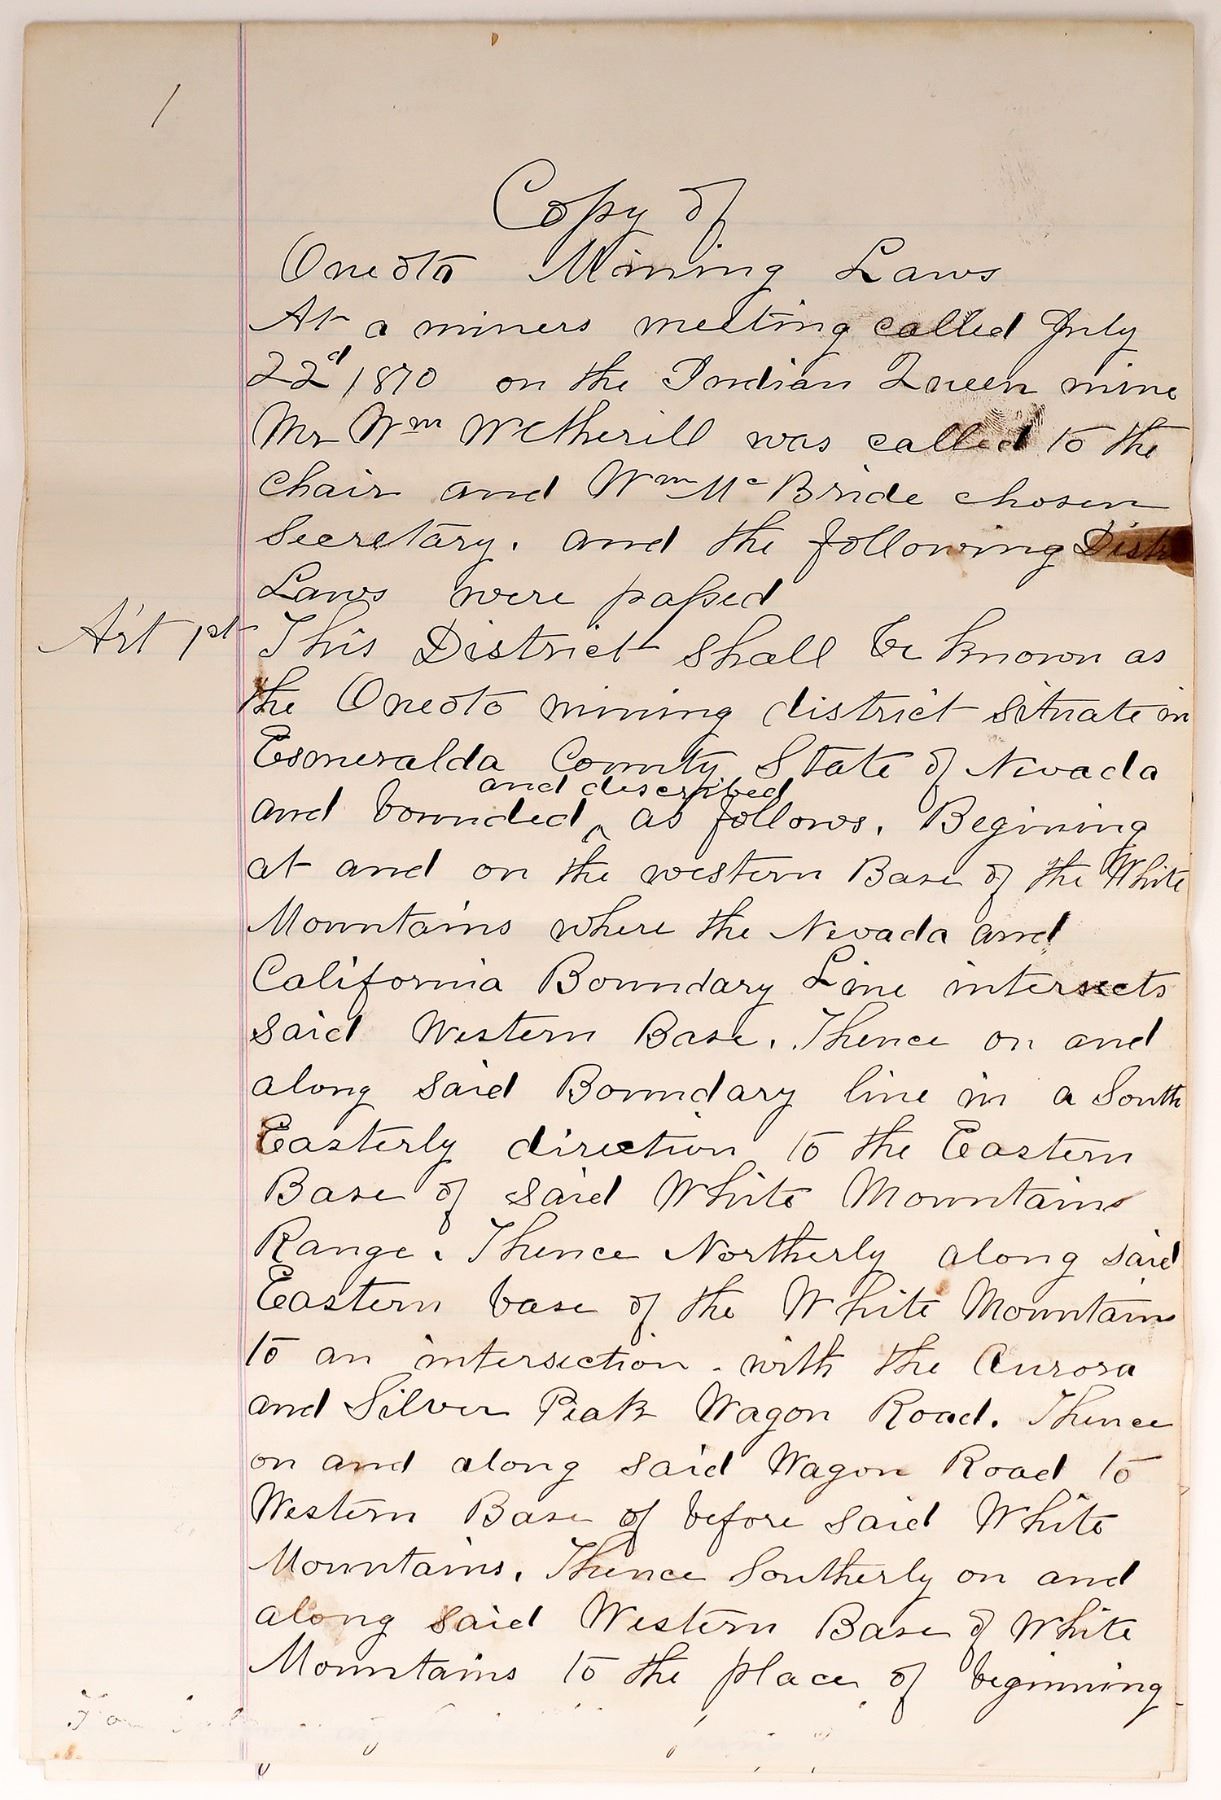 1
Copy of
Oneoto Mining Laws
At a miners meeting called July
22d 1870 on the Indian Queen mine
Mr Wm Wetherill was called to the
chair and Wm McBride chosen
Secretary. and the following Distr
Laws were passed
Art 1st This District shall be known as
the Oneoto mining district situate in
Esmeralda County State of Nevada
and described
and bounded ^ as follows. Begining
at and on the western Base of the White
Mountains where the Nevada and
California Boundary Line intersects
said Western Base. Thence on and
along said Boundary line in a South
Easterly direction to the Eastern
Base of said White Mountains
Range. Thence Northerly along said
Eastern base of the White Mountains
to an intersection - with the Aurora
and Silver Peak Wagon Road. Thence
on and along said Wagon Road to
Western Base of before said White
Mountains. Thence Southerly on and
along said Western Base of White
Mountains to the place of beginning